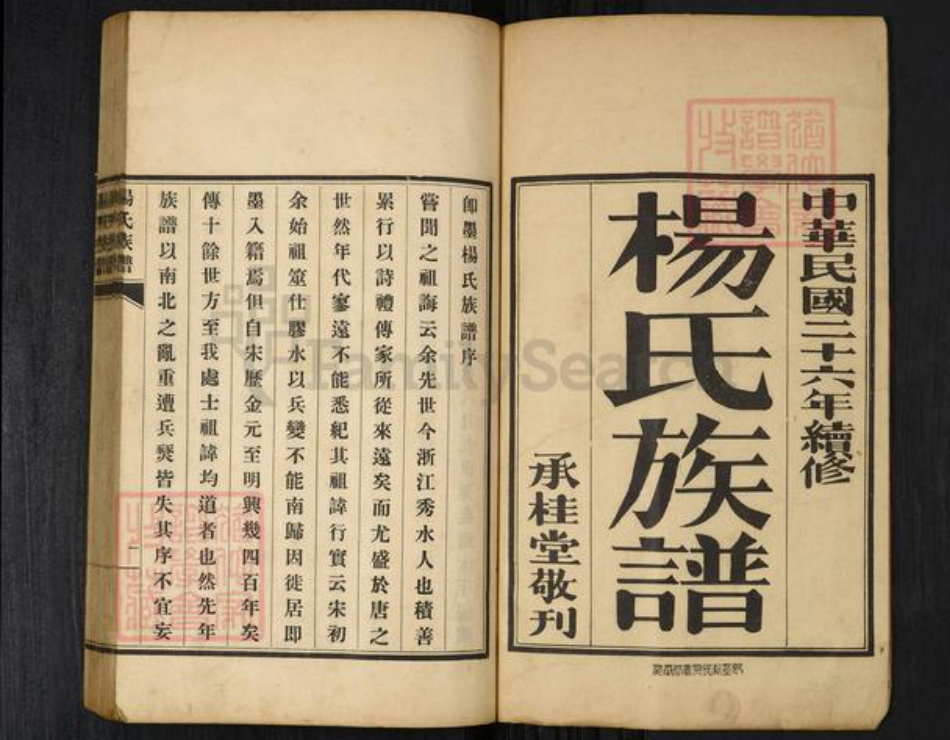 中華民國二十六年續修
楊氏族譜
承桂堂敬刊
卽墨楊氏族譜序
嘗聞之祖誨云余先世今浙江秀水人也積善
累行以詩禮傳家所從來遠矣而尤盛於唐之
世然年代寥遠不能悉紀其祖諱行實云宋初
余始祖筮仕膠水以兵變不能南歸因徙居即
墨入籍焉但自宋歷金元至明興幾四百年矣
傳十餘世方至我處士祖諱均道者也然先年
族譜以南北之亂重遭兵燹皆失其序不宜妄
楊氏族譜
FamilySearch